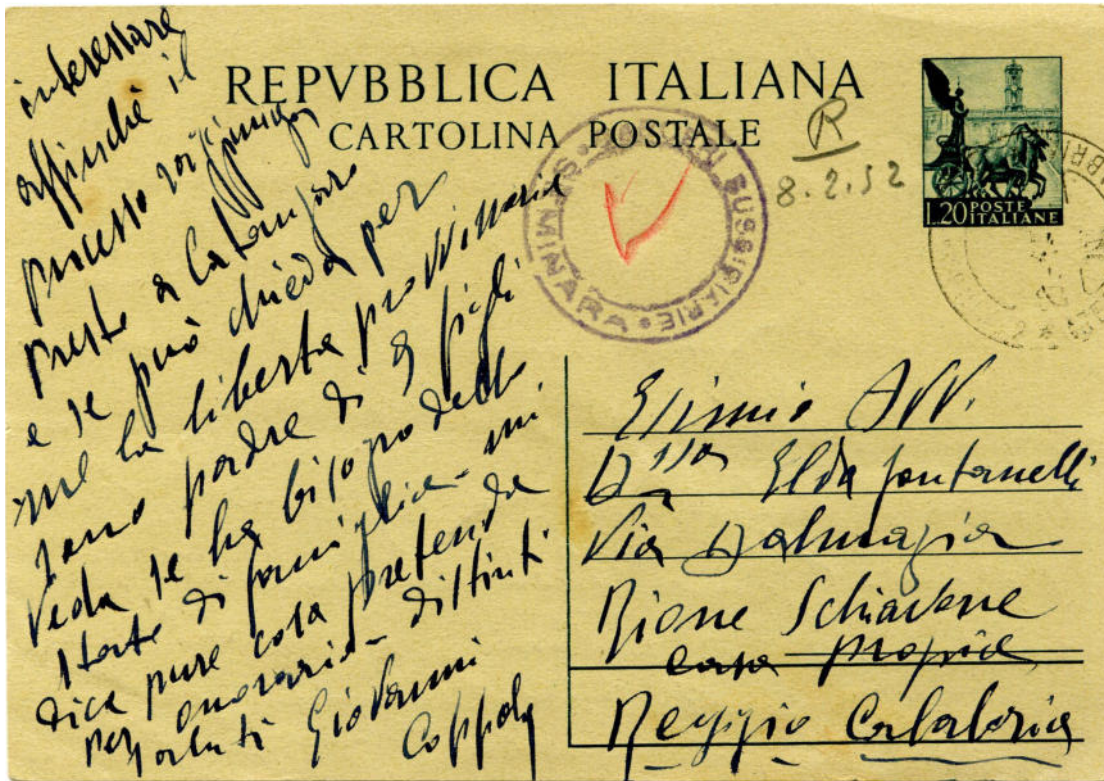 REPVBBLICA ITALIANA
CARTOLINA POSTALE
R
8.2.52
L.20 POSTE
ITALIANE
SUSSIDIARIE
interessare
affinché il
processo
presto a Catanzaro
e se può chieda per
me la libertà provvisoria
sono padre di 9 figli
Veda se ha bisogno dello
stato di famiglia - mi
dica pure cosa pretende
per onorario - distinti
saluti Giovanni
Coppola
Esimio Avv.
D.ssa Elda Fontanelli
Via Dalmazia
Rione Schiavone
casa propria
Reggio Calabria